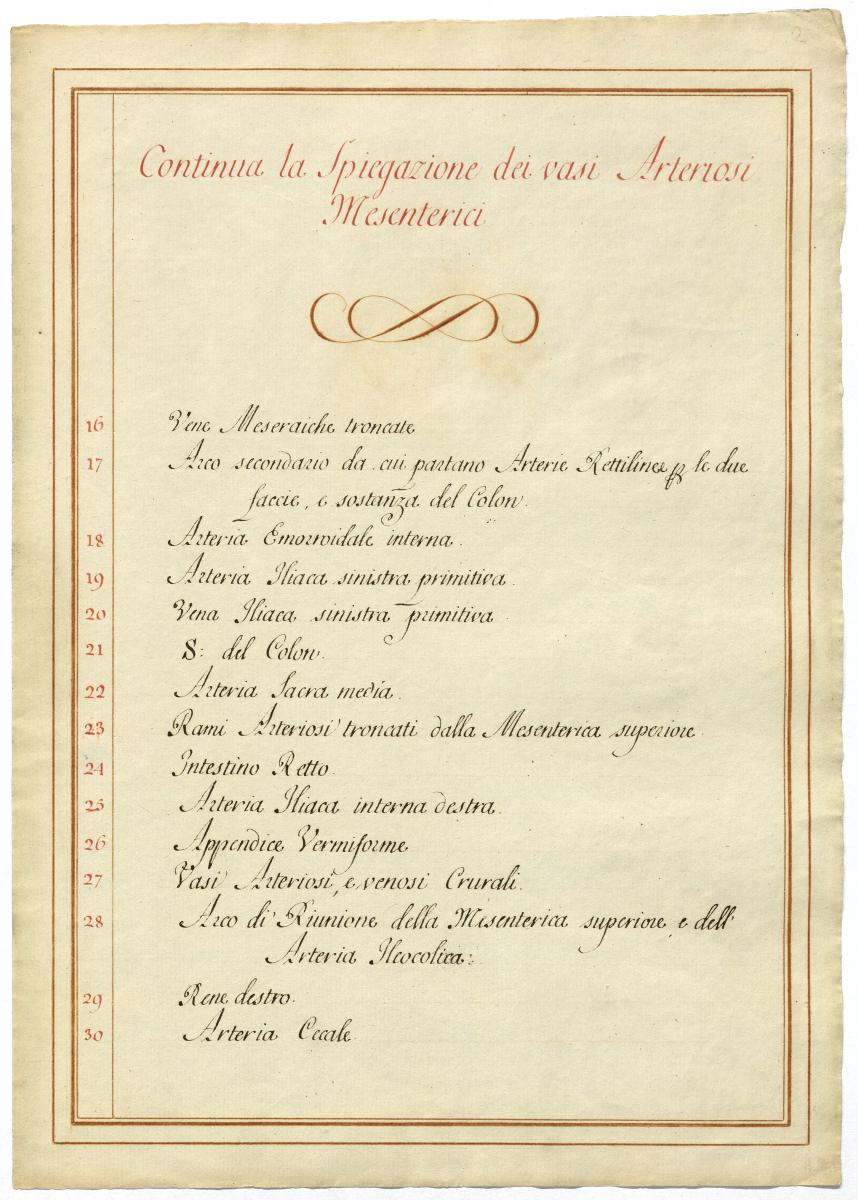 2
Continua la Spiegazione dei vasi Arteriosi
Mesenterici
16 Vene Meseraiche troncate
17 Arco secondario da cui partano Arterie Rettilinee le due
faccie, e sostanza del Colon.
18 Arteria Emorroidale interna.
19 Arteria Iliaca sinistra primitiva.
20 Vena Iliaca sinistra primitiva
21 S: del Colon.
22 Arteria Sacra media.
23 Rami Arteriosi troncati dalla Mesenterica superiore.
24 Intestino Retto.
25 Arteria Iliaca interna destra.
26 Appendice Vermiforme
27 Vasi Arteriosi, e venosi Crurali.
28 Arco di Riunione della Mesenterica superiore, e dell'
Arteria Ileocolica:
29 Rene destro.
30 Arteria Cecale.